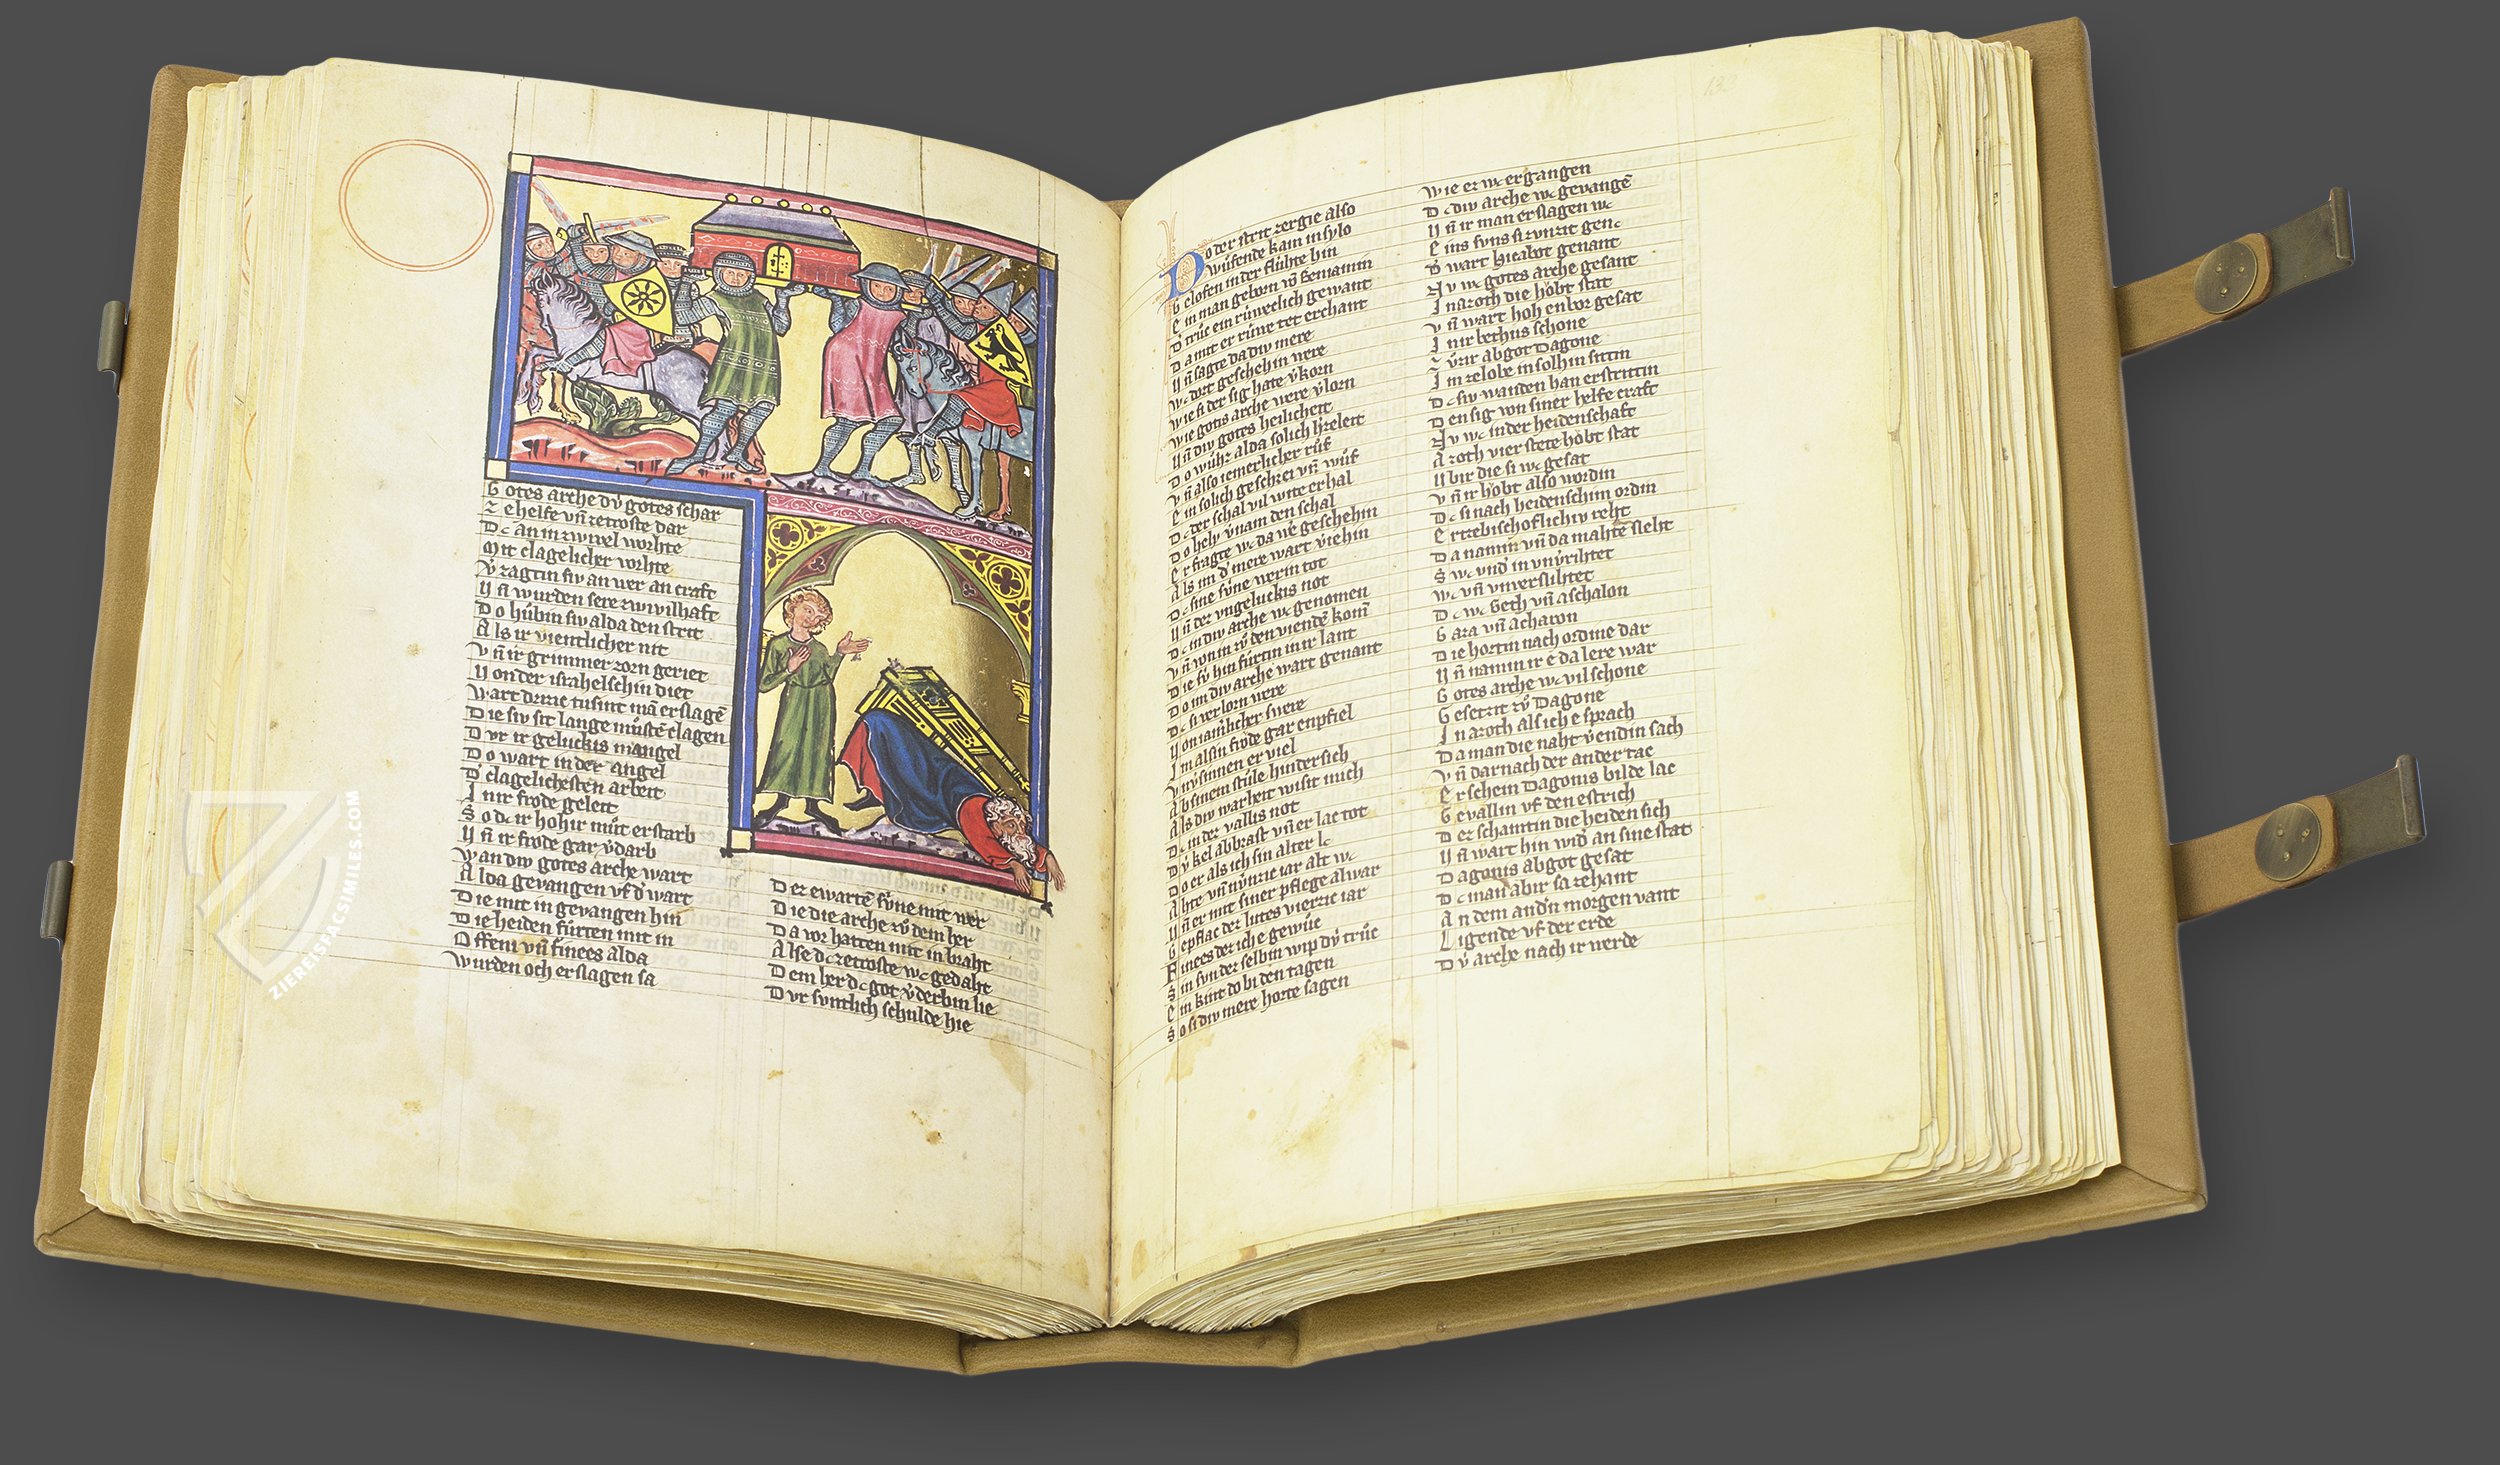 Gotes arche dv̓ gotes schar
ze helfe vñ zetroste dar
Dc an in zwivel worhte
Mit clagelicher vorhte
V̓zagtin siv an wer an craft
Vñ wurden sere zwivilhaft
Do hůbin siv alda den strit
Als ir vientlicher nit
Vñ ir grimmer zorn geriet
Von der israhelschin diet
Wart drizic tusint mā erslagē
Die siv sit lange můstē clagen
Dvr ir geluckis mangel
Do wart in der angel
D̓ clagelichesten arbeit
In ir frode geleit
So dc ir hohir můt erstarb
Vñ ir frode gar v̓darb
Wan div gotes arche wart
Alda gevangen vf d̓ vart
Die mit in gevangen hin
Die heiden fůrten mit in
Offeni vñ finees alda
Wurden och erslagen sa
Der ewartē sv̓ne mit wer
Die die arche zů dem her
Da vor hatten mit in braht
Alse dc zetroste wc gedaht
Dem her dc got v̓derbin lie
Dvr svntlich schulde hie
132
Do der strit zergie also
Wůfende kam in sylo
Gelofen in der fluhte hin
Ein man geborn vō Beniamin
D̓ trůc ein rúwelich gewant
Da mit er rúwe tet erchant
Vñ sagte da div mere
Wc dort geschehin were
Wie si der sig hate v̓korn
Wie gotis arche were v̓lorn
Vñ div gotes heilicheit
Do wůhz alda solich h̓zeleit
Vñ also iemerlicher růf
Ein solich geschrei vñ wůf
Dc der schal vil wite erhal
Do hely v̓nam den schal
Er fragte wc da w̓e geschehin
Als im d̓ mere wart v̓iehin
Dc sine sv̓ne werin tot
Vñ der vngeluckis not
Dc in div arche wc genomen
Vñ von in zů den viendē komē
Die sv̓ hin fůrtin in ir lant
Do im div arche wart genant
Dc si verlorn were
Von iam̓licher swere
Im alsin frode gar enpfiel
Vnv̓sinnen er viel
Ab sinem stůle hindersich
Als div warheit wisit mich
Dc in der vallis not
Dv̓ kel abbrast vñ er lac tot
Do er als ich sin alter lc
Ahte vñ nv̓nzic iar alt wc
Vñ er mit siner pflege alwar
Gepflac der lutes vierzic iar
Finees der ich e gewůc
Sin svn der selbin wip dv̓ trůc
Ein kint do bi den tagen
So si div mere horte sagen
Wie ez wc ergangen
Dc div arche wc gevangē
Vñ ir man erslagen wc
Eins svns si vnzit genc
D̓ wart hicabot genant
Nv wc gotes arche gesant
In azoth die hobt stat
Vñ wart hoh enbor gesat
In ir bethus schone
Zů ir abgot Dagone
Im zelobe in solhin sittin
Dc siv wanden han erstrittin
Den sig von siner helfe craft
Nv wc in der heidenschaft
Azoth vier stete hobt stat
Vbir die si wc gesat
Vñ ir hobt also wordin
Dc si nach heidenschim ordin
Ertzebischoflichiv reht
Da namin vñ da mahtē sleht
Swc vnd̓ in vnv̓rihtet
Wc vñ vnverslihtet
Dc wc Geth vñ aschalon
Gaza vñ acharon
Die hortin nach ordine dar
Vñ namin ir e da lere war
Gotes arche wc vil schone
Gesetzit zů Dagone
In azoth als ich e sprach
Da man die naht v̓endin sach
Vñ darnach der ander tac
Erschein Dagonis bilde lac
Gevallin vf den estrich
Der schamtin die heiden sich
Vñ wart hin wid̓ an sine stat
Dagonis abgot gesat
Dc man abir sa zehant
An dem and̓n morgen vant
Ligende vf der erde
Dv̓ arche nach ir werde
ZIEREISFACSIMILES.COM